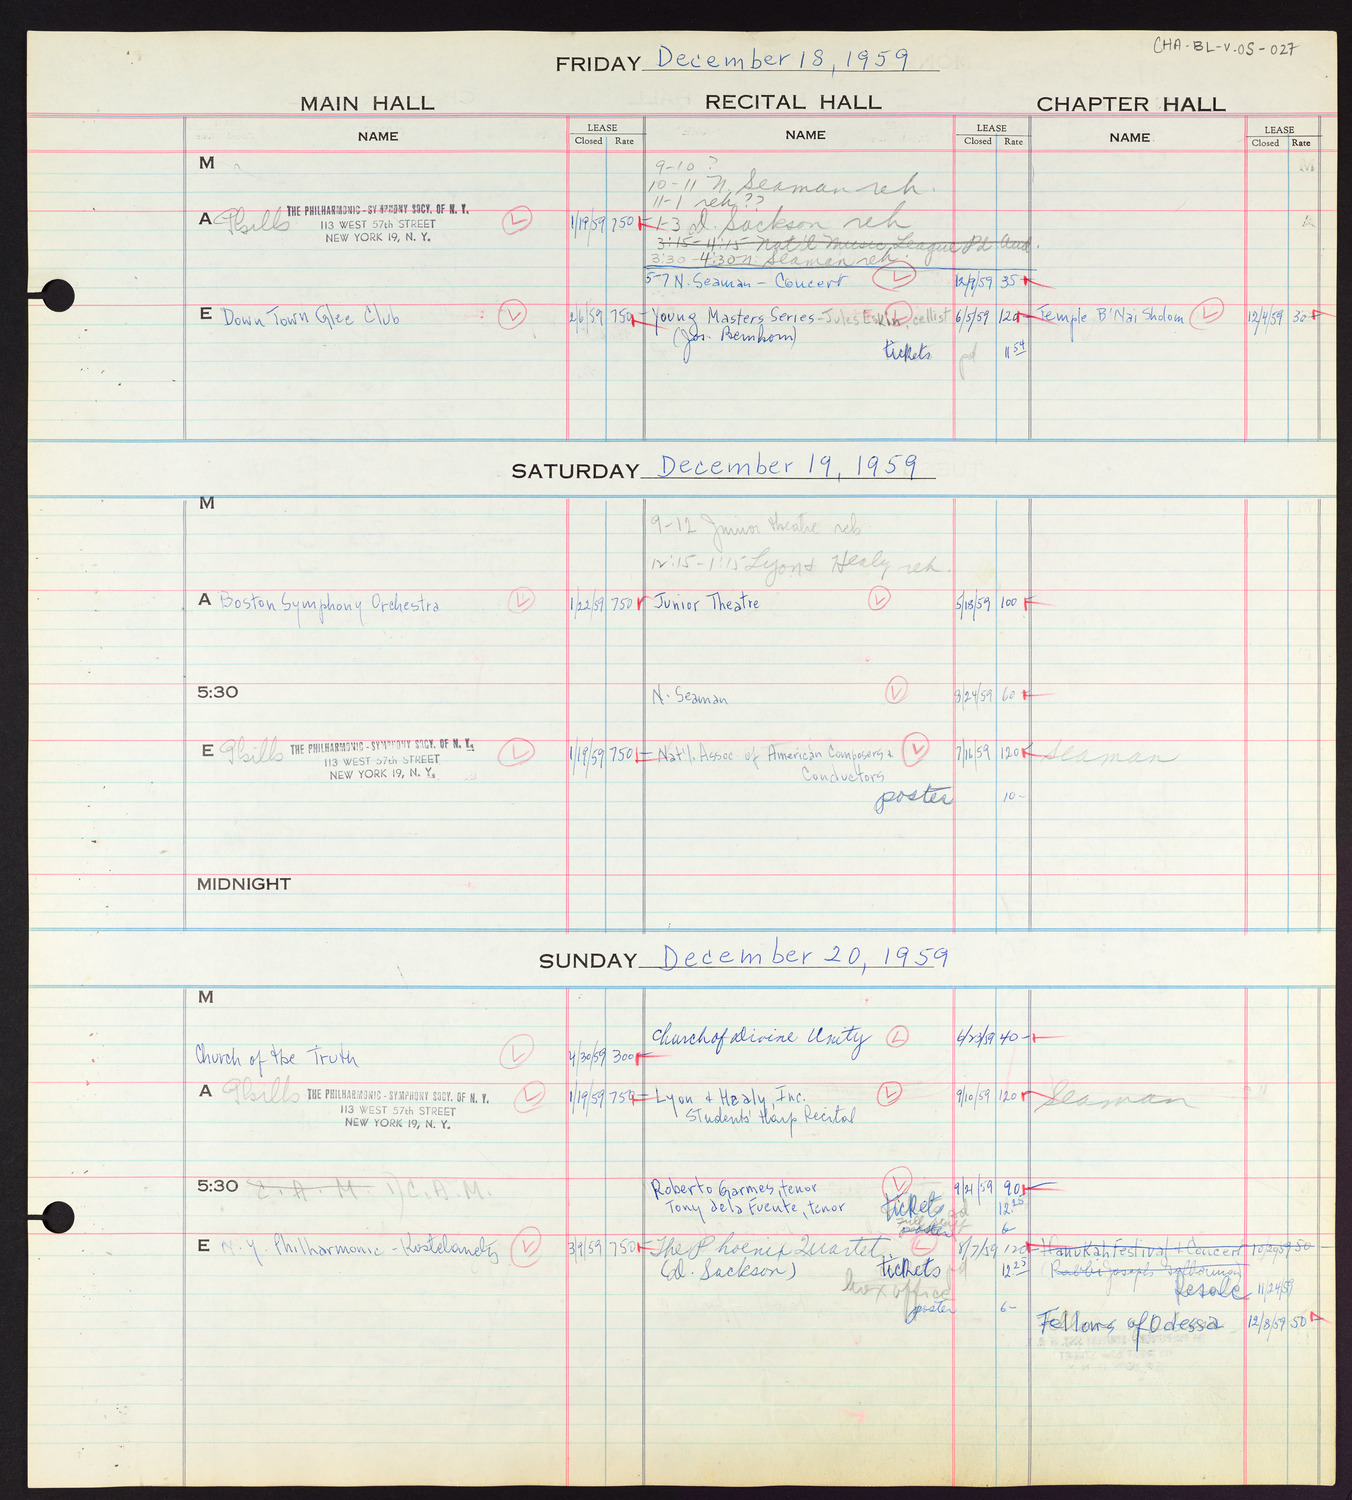 CHA-BL-V.05-027
FRIDAY December 18, 1959
MAIN HALL RECITAL HALL CHAPTER HALL
NAME LEASE Closed Rate NAME LEASE Closed Rate NAME LEASE Closed Rate
M
9-10 ?
10-11 N. Seaman reh.
11-1 reh ??
A THE PHILHARMONIC-SYMPHONY SOCY. OF N. Y. 1/19/59 750 1-3 D. Sackson reh
113 WEST 57th STREET
NEW YORK 19, N. Y.
3:15-4:15 Nat'l Music League Pd Aud.
3:30-4:30 N. Seaman reh.
5-7 N. Seaman - Concert 12/9/59 35-
E Down Town Glee Club 2/6/59 750 Young Masters Series - Jules Eskin, cellist 6/5/59 120 Temple B'Nai Sholom 12/4/59 30-
(Jos. Bernhorn)
tickets pd 11 54
SATURDAY December 19, 1959
M
9-12 Junior theatre reh
12:15-1:15 Lyon & Healy reh.
A Boston Symphony Orchestra 1/22/59 750 Junior Theatre 5/18/59 100
5:30 N. Seaman 8/24/59 60
E THE PHILHARMONIC-SYMPHONY SOCY. OF N. Y. 1/19/59 750 Nat'l. Assoc. of American Composers & 7/16/59 120 Seaman
113 WEST 57th STREET Conductors
NEW YORK 19, N. Y.
poster 10-
MIDNIGHT
SUNDAY December 20, 1959
M
Church of Divine Unity 6/23/59 40-
Church of the Truth 4/30/59 300
A THE PHILHARMONIC-SYMPHONY SOCY. OF N. Y. 1/19/59 750 Lyon & Healy, Inc. 9/10/59 120 Seaman
113 WEST 57th STREET Students' Harp Recital
NEW YORK 19, N. Y.
5:30 C. A. M. C. A. M. Roberto Garmes, tenor 9/21/59 90
Tony de la Fuente, tenor tickets 12 25
poster 6-
E N. Y. Philharmonic - Kostelanetz 3/9/59 750 The Phoenix Quartet 8/7/59 120 Hanukah Festival & Concert 10/29/59 50-
(D. Sackson) tickets 12 25 (Rabbi Joseph
box office Resale 11/24/59
poster 6-
Fellows of Odessa 12/8/59 50